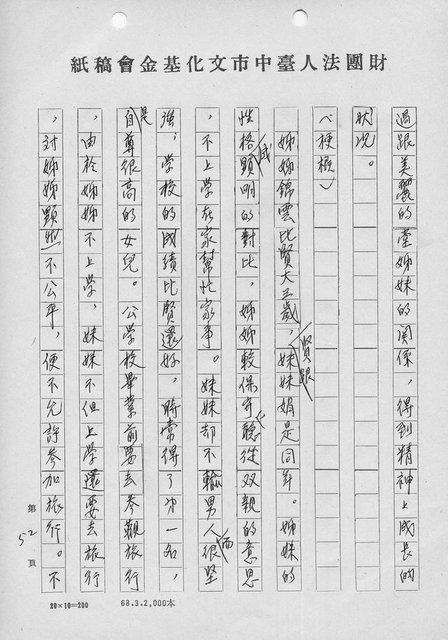 財團法人臺中市文化基金會稿紙
過跟美麗的臺姊妹的関係，得到精神上成長的
狀況。
（梗概）
姊姊錦雲比賢大三歲，賢跟妹妹娟是同年。姊妹的
性格成顯明的對比，姊姊較保守聽從双親的意思
，不上學在家幫忙家事。妹妹却不輸男人而很坚
強，學校的成績比賢還好，時常得了第一名，
是自尊很高的女兒。公學校畢業前要去參觀旅行
，由於姊姊不上學，妹妹不但上學還要去旅行
，対姊姊顯然不公平，便不允許参加旅行。不
第 52 頁
20×10=200
68.3.2,000本